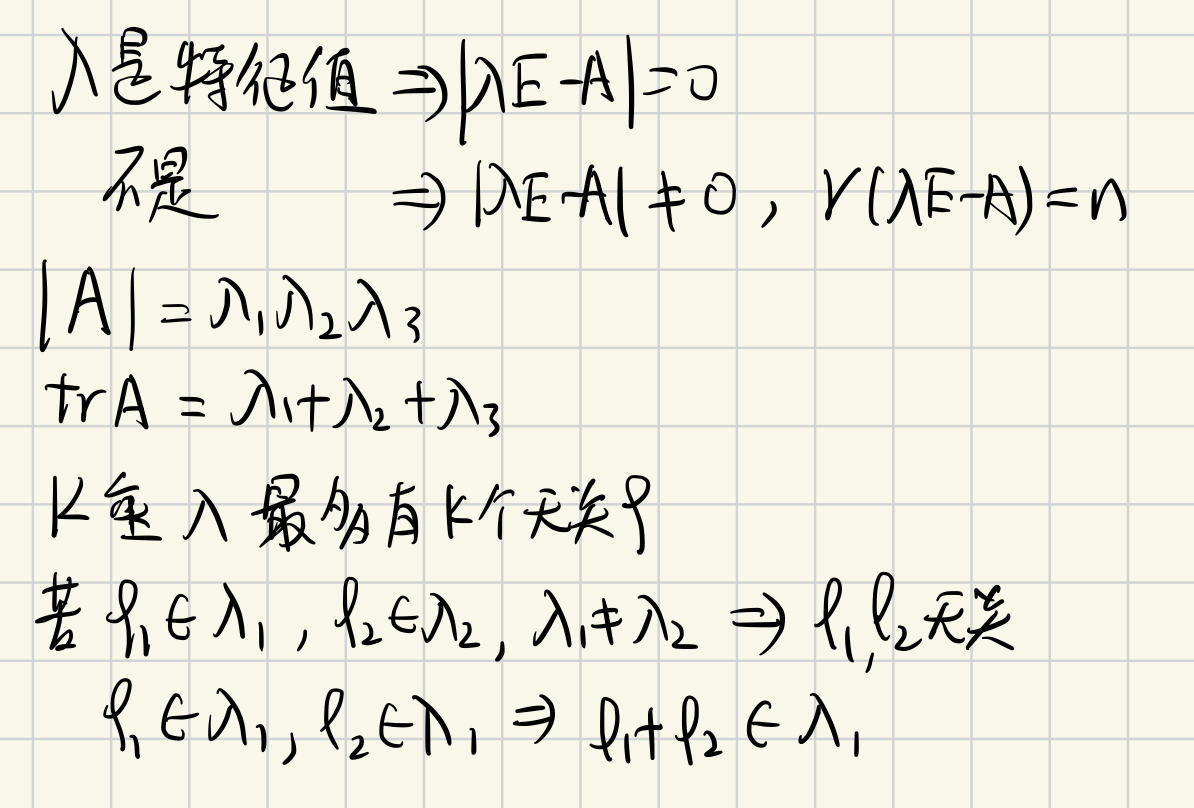 λ是特征值 ⇒|λE-A|=0
不是 ⇒ |λE-A| ≠ 0, r(λE-A)=n
|A| = λ₁λ₂λ₃
trA = λ₁+λ₂+λ₃
K重λ最多有K个无关ρ
若 ρ₁∈λ₁, ρ₂∈λ₂, λ₁≠λ₂ ⇒ ρ₁,ρ₂无关
ρ₁∈λ₁, ρ₂∈λ₁ ⇒ ρ₁+ρ₂∈λ₁